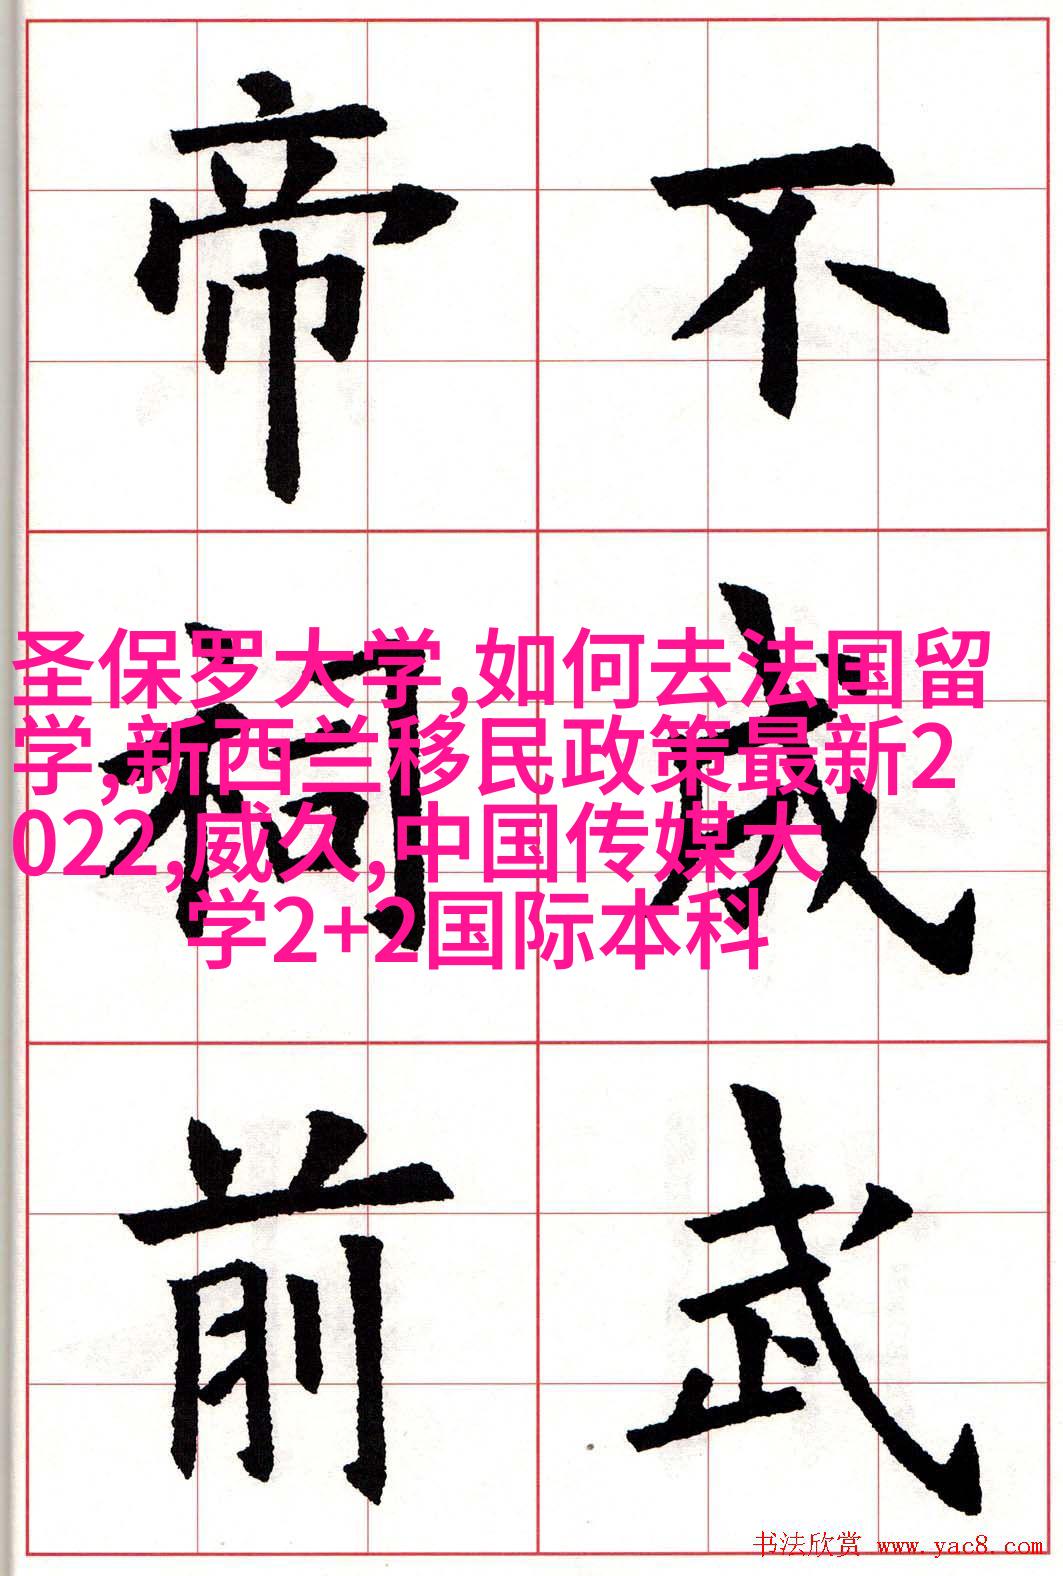 不
武
帝
祠
前
圣保罗大学,如何去法国留
学,新西兰移民政策最新2
022,威久,中国传媒大
学2+2国际本科
书法欣赏 www.yac8.com